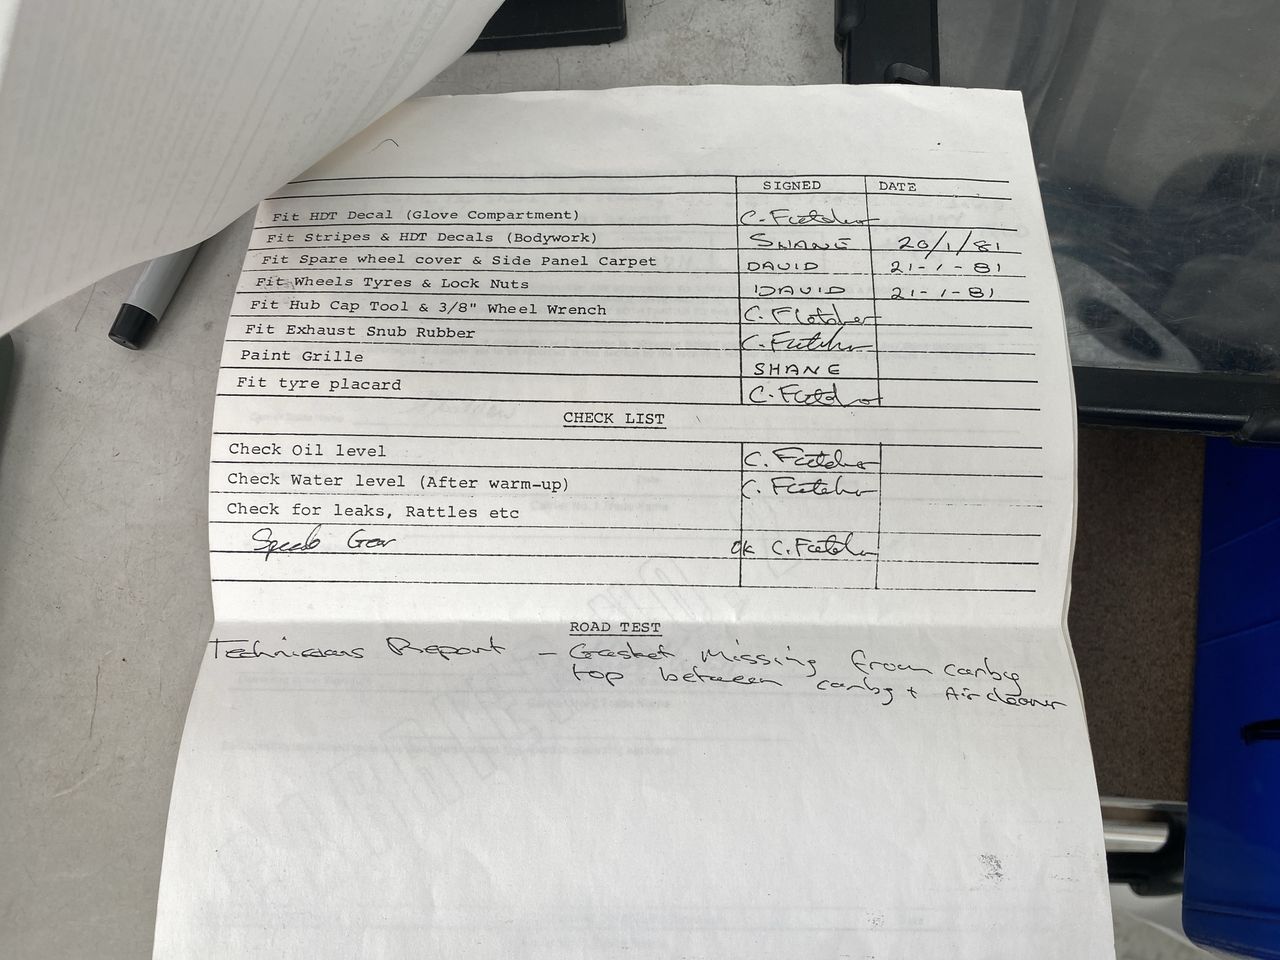 SIGNED DATE
Fit HDT Decal (Glove Compartment) C. Fletcher
Fit Stripes & HDT Decals (Bodywork) SHANE 20/1/81
Fit Spare wheel cover & Side Panel Carpet DAVID 21-1-81
Fit Wheels Tyres & Lock Nuts DAVID 21-1-81
Fit Hub Cap Tool & 3/8" Wheel Wrench C. Fletcher
Fit Exhaust Snub Rubber C. Fletcher
Paint Grille SHANE
Fit tyre placard C. Fletcher
CHECK LIST
Check Oil level C. Fletcher
Check Water level (After warm-up) C. Fletcher
Check for leaks, Rattles etc
ok C. Fletcher
ROAD TEST
Technicians Report - Gasket Missing from carby
top between carby + Air cleaner